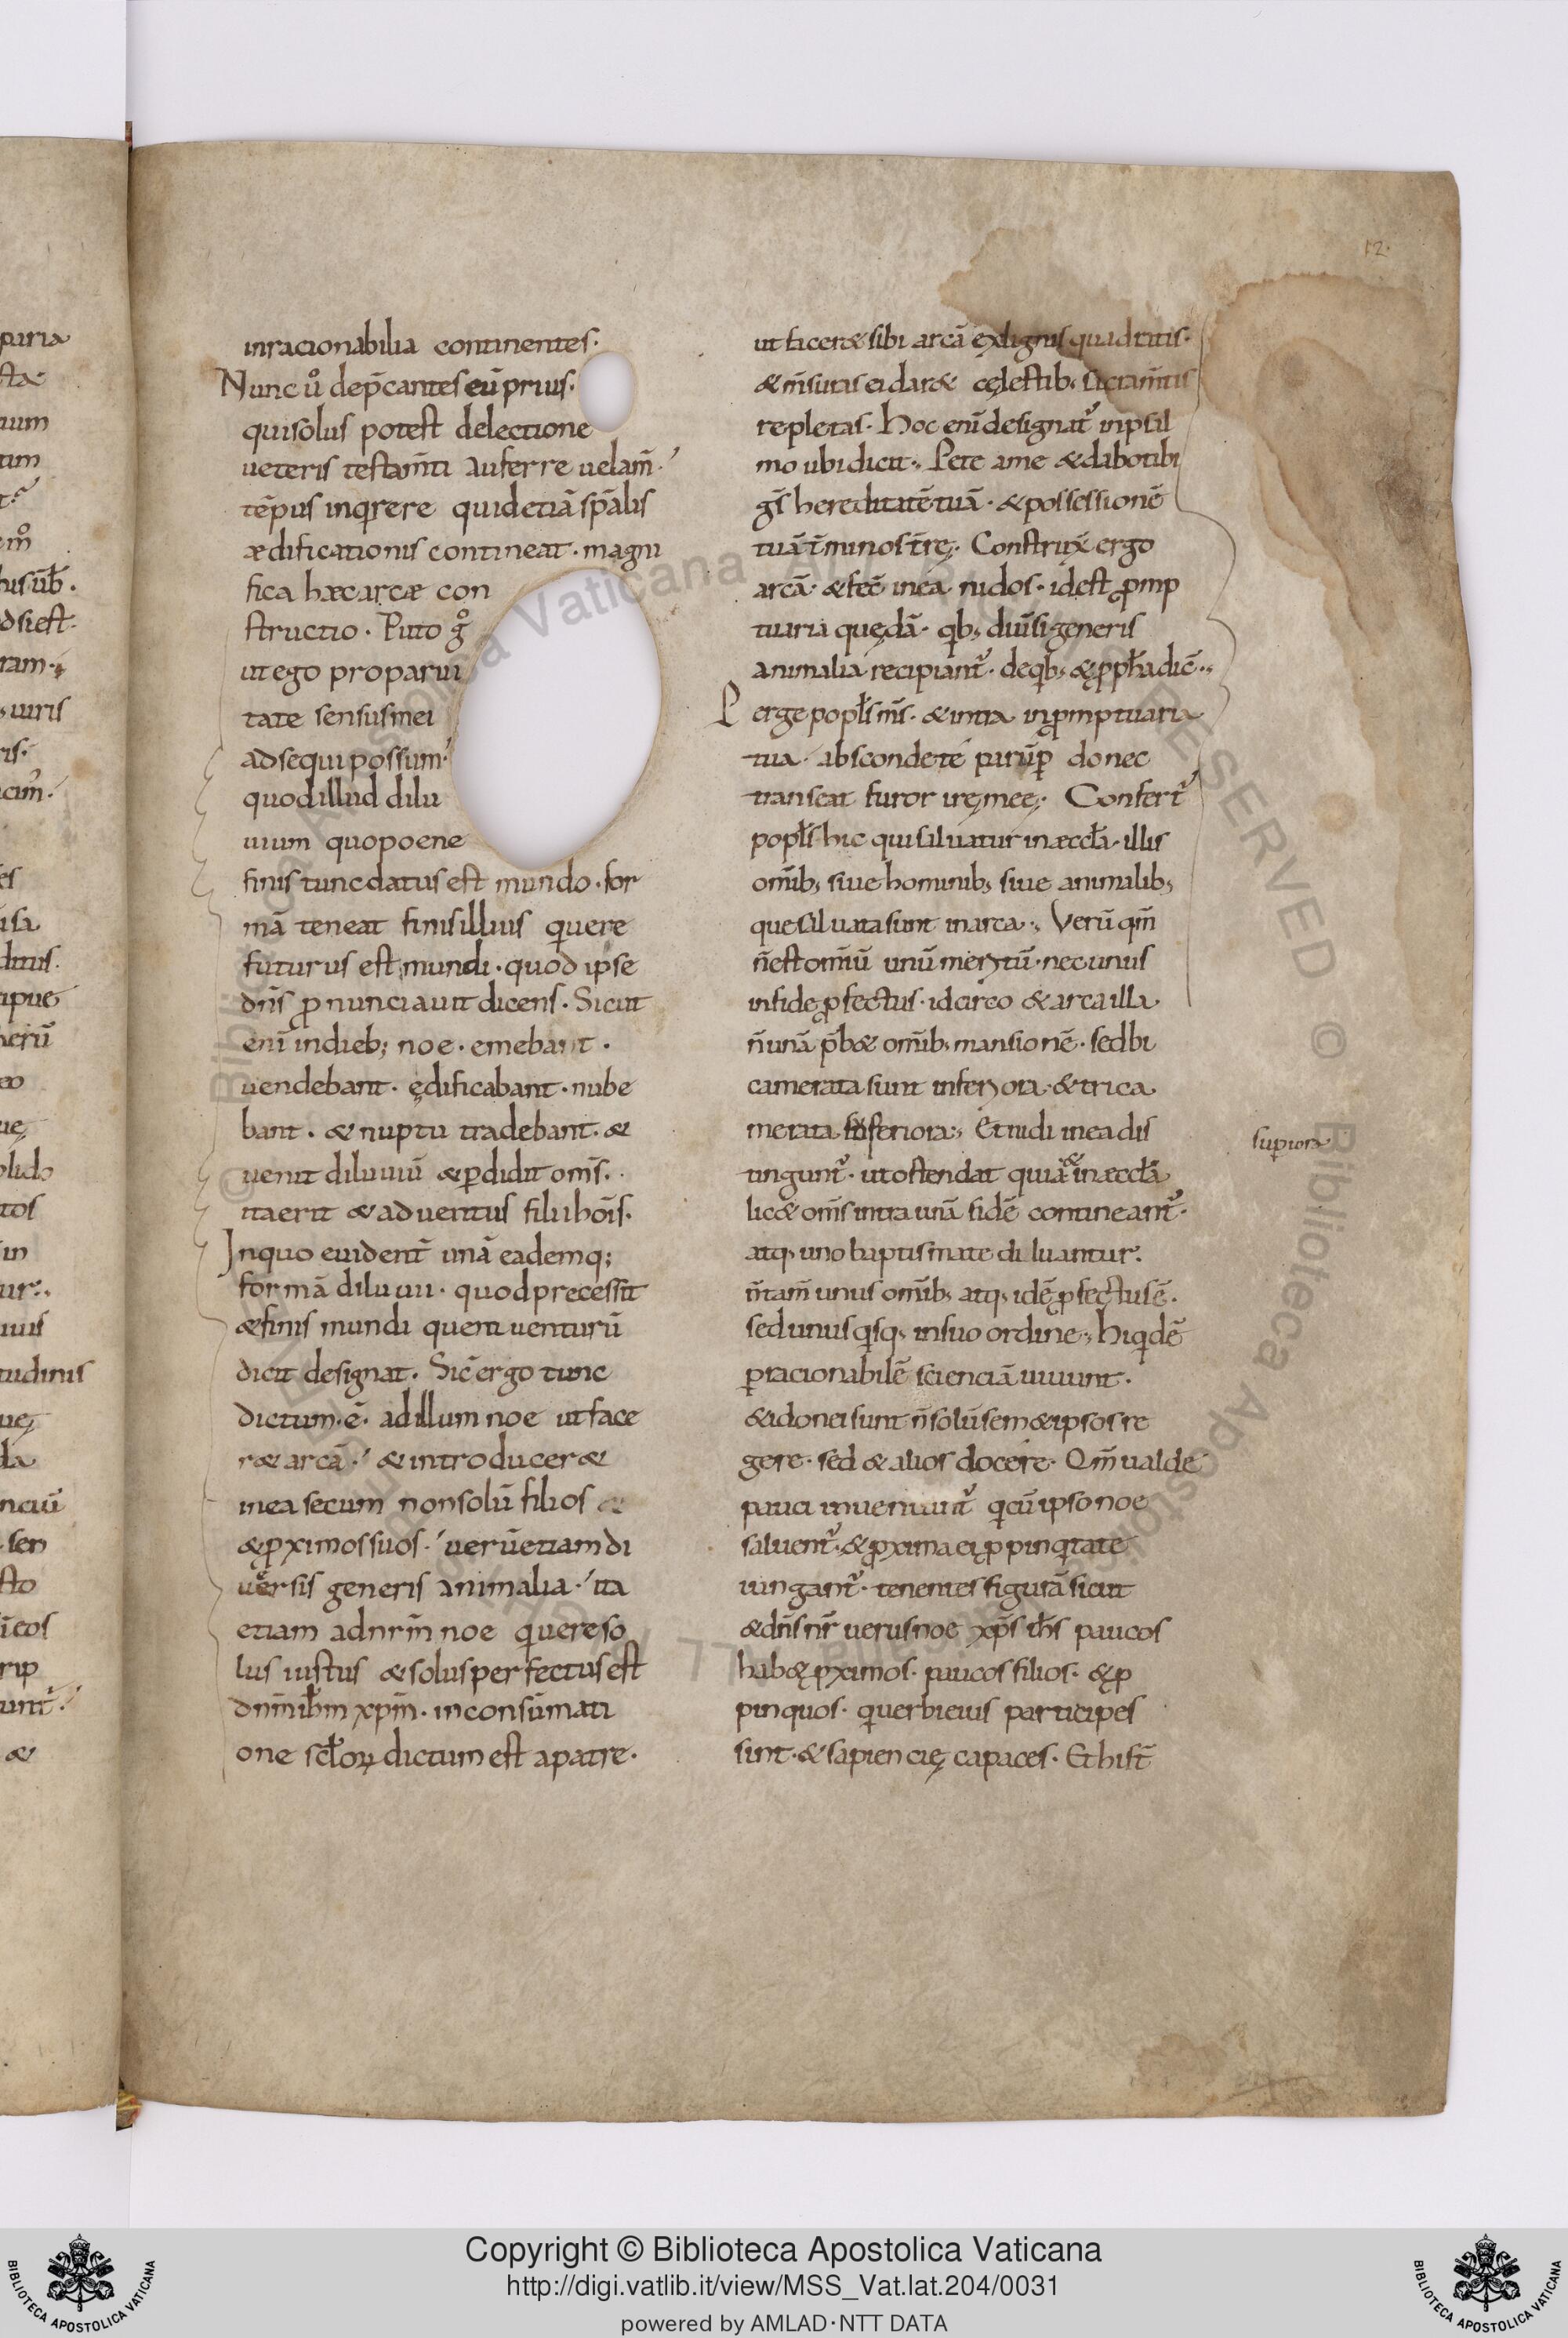 12.
inracionabilia continentes.
Nunc uº dep̄cantes eū prius.
qui solus potest delectione
ueteris testam̄ti auferre uelam̄.
tēpus inqrere quid etiā sp̄alis
ædificationis contineat. magni
fica hæc arcæ con
structio. Puto gº
ut ego pro parui
tate sensus mei
adsequi possum.
quod illud dilu
uium quo poene
finis tunc datus est mundo. for
mā teneat finis illius q uere
futurus est mundi. quod ipse
dn̄s ꝓnunciauit dicens. Sicut
enī in dieb; noe. emebant.
uendebant. ędificabant. nube
bant. & nuptu tradebant. &
uenit diluuiū & ꝑdidit om̄s.
ita erit & aduentus filii hōis.
In quo euident̄ unā eademq;
formā diluuii. quod precessit
& finis mundi quem uenturū
dicit designat. Sic̄ ergo tunc
dictum .ē. ad illum noe ut face
r& arcā. & introducer&
in ea secum non solū filios
& ꝓximos suos. uerū etiam di
uersis generis animalia. ita
etiam ad nrm̄ noe q uere so
lus iustus & solus perfectus est
dn̄m ihm̄ xpm̄. in consūmati
one scl̄oꝝ dictum est a patre.
ut facer& sibi arcā ex lignis quadratis.
& m̄suras ei dar& cęlestib; sacram̄tis
repletas. Hoc enī designat᷒ in psal
mo ubi dicit. Pete a me & dabo tibi
gēs hereditatē tuā. & possessionē
tuā t̄minos t̄rę. Construx̄ ergo
arcā. & fec̄ in ea nidos. id est ꝓmp
tuaria quędā. qb; diūsi generis
animalia recipiant᷒. de qb; & ꝓph̄a dic̄.
Perge popl̄s m̄s. & intra in ꝓmptuaria
tua. absconde te parūꝑ donec
transeat furor irę męe. Confert᷒
popl̄s hic qui saluatur in æccl̄a. illis
om̄ib; siue hominib; siue animalib;
que saluata sunt in arca. Verū qm̄
n̄ est om̄iū unū meritū. nec unus
in fide ꝓfectus. idcirco & arca illa
n̄ unā p̄b& om̄ib; mansionē. sed bi
camerata sunt inferiora. & trica
merata inferiora. Et nidi in ea dis
superiora
tingunt᷒. ut ostendat quia & in æccl̄a
lic& om̄s intra unā fidē contineant᷒.
atq; uno baptismate diluantur.
n̄ tam̄ unus om̄ib; atq; idē ꝓfectus ē.
sed unus qsq; in suo ordine. hi qdē
ꝑ racionabilē scienciā uiuunt.
& idonei sunt n̄ solū sem&ipsos re
gere. sed & alios docere. Qm̄ ualde
pauci inueniunt᷒ q cū ipso noe
saluent᷒. & ꝓxima ei ꝓpinqtate
iungant᷒. tenentes figurā sicut
& dn̄s nr̄ uerus noe xp̄s ih̄s paucos
hab& ꝓximos. paucos filios. & ꝓ
pinquos. q uerbi eius participes
sunt. & sapiencię capaces. Et hi st̄
Copyright © Biblioteca Apostolica Vaticana
http://digi.vatlib.it/view/MSS_Vat.lat.204/0031
powered by AMLAD·NTT DATA